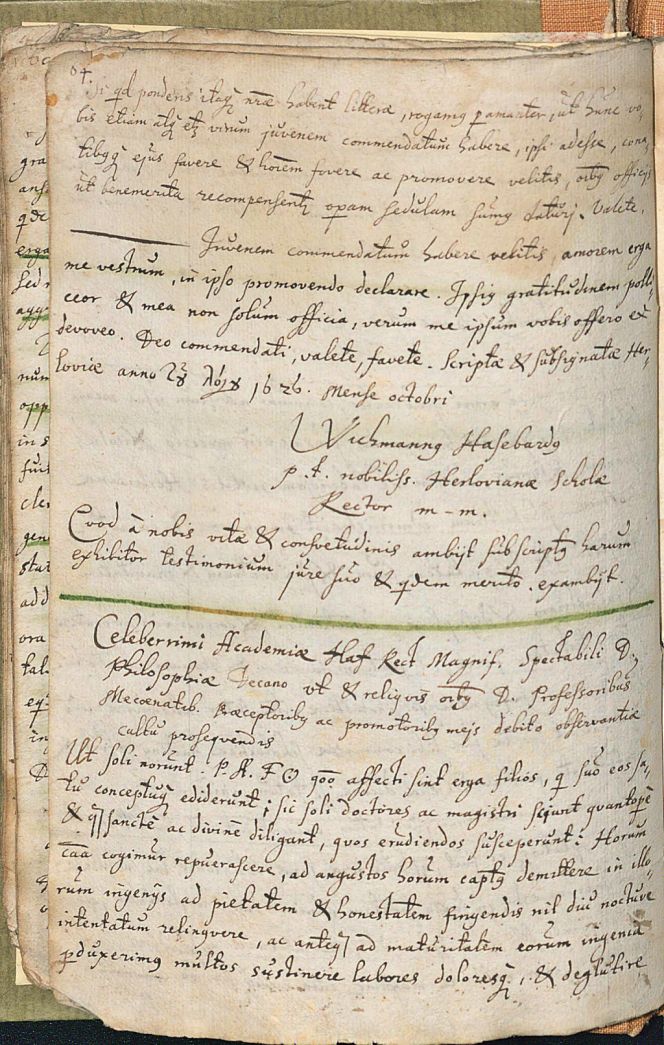 84.
Si qd ponderis itaq nræ habent litteræ, rogamq pamanter, ut hunc vo,
bis etiam atq etq virum juvenem commendatum habere, ipsi adesse, cona,
tibqq ejus favere & hoiem fovere ac promovere velitis, oibq officijs
ut benemerita recompensentq opam sedulam sumq daturj. Valete.
Juvenem commendatum habere velitis, amorem erga
me vestrum, in ipso promovendo declarare. Ipsiq gratitudinem polli
ceor & mea non solum officia, verum me ipsum vobis offero &
devoveo. Deo commendati, valete, favete. Scriptæ & subsignatæ Her,
loviæ anno 1626. Mense octobri
Wichmannq Hasebardq
p. t. nobiliss. Herlovianæ Scholæ
Rector m-m.
Qvod à nobis vitæ & consvetudinis ambijt subscriptq harum
exhibitor testimonium jure suo & qdem merito. exambijt.
Celeberrimi Academiæ Haf Rect Magnif. Spectabili D.
Philosophiæ Decano ut & reliqvis oibq D. Professoribus
Mecœnatib. Præceptoribq ac promotoribq meis debito observantiæ
cultu proseqvendis
Ut soli norunt. P. H. F qoo affecti sint erga filios, q suo eos sa,
tu conceptusq ediderunt; sic soli doctores ac magistri sciunt qvantope
& qsancte ac divine diligant, qvos erudiendos susceperunt: Horum
caa cogimur repuerascere, ad angustos horum captq demittere in illo,
rum ingenijs ad pietatem & honestatem fingendis nil diu noctuve
intentatum relinqvere, ac anteq ad maturitatem eorum ingenia
pduxerimq multos sustinere labores doloresq, & deglutire